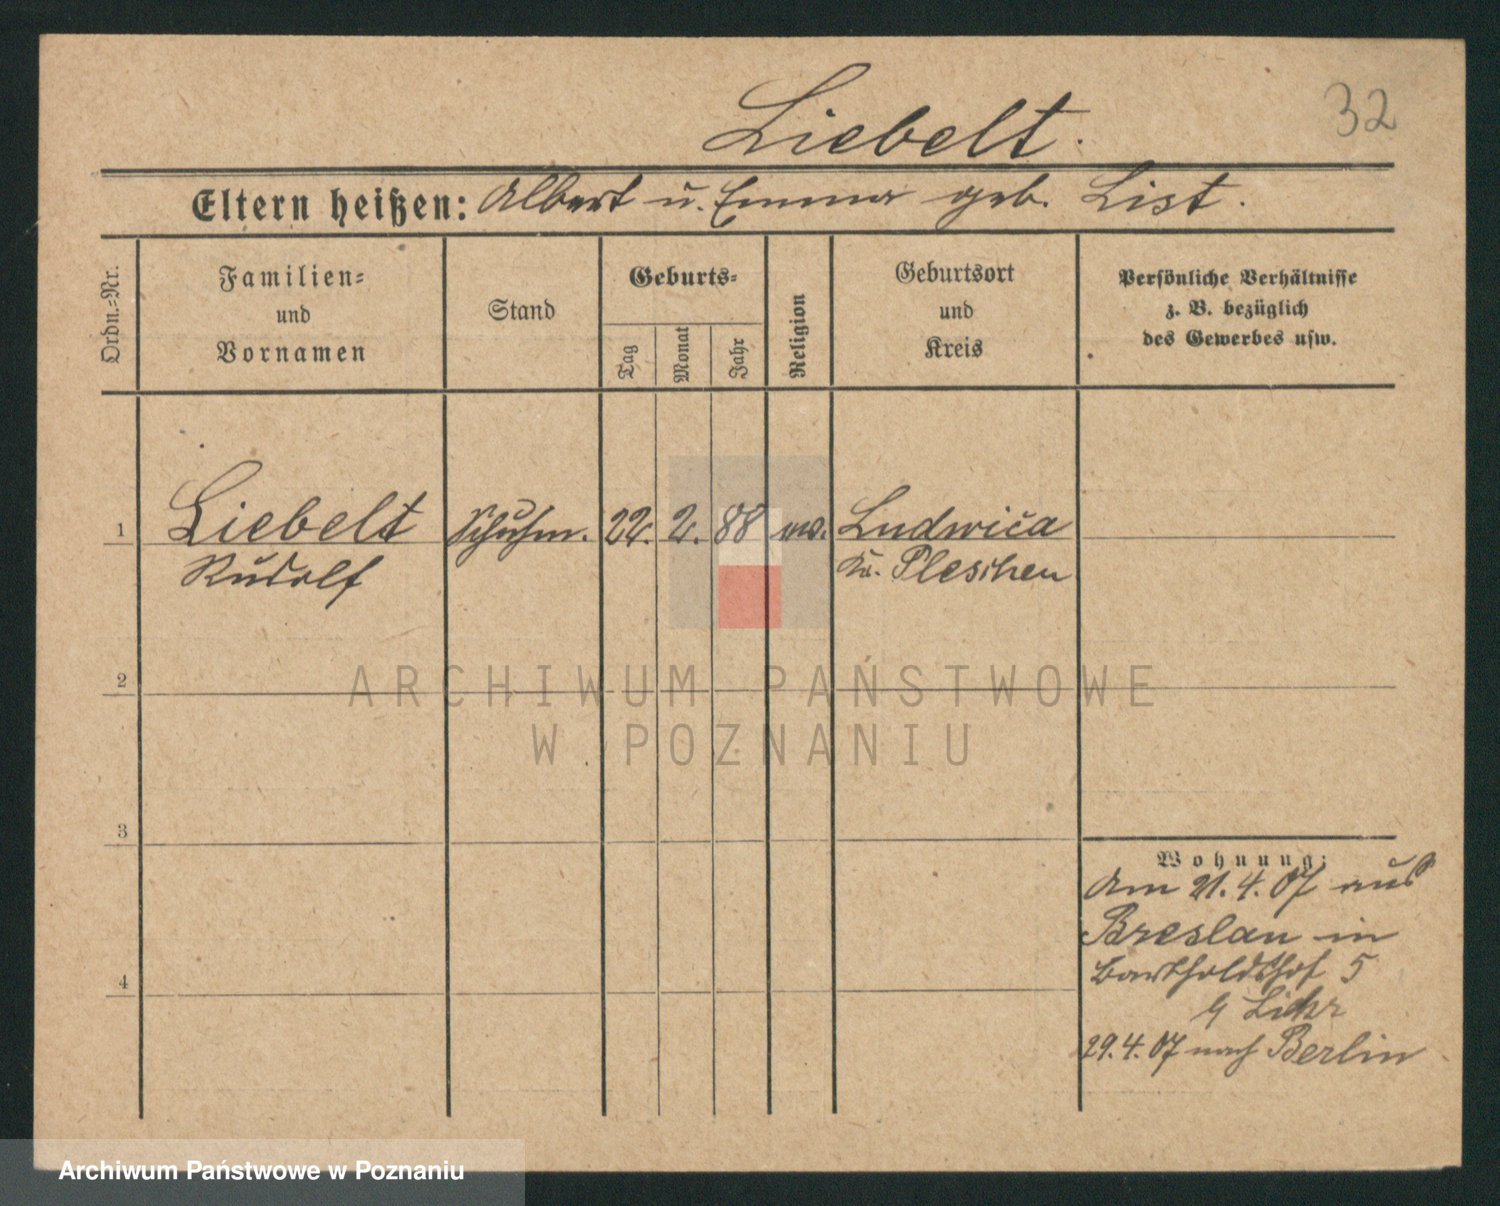 32
Liebelt.
Eltern heißen: Albert u. Emma geb. List.
Ordn.=Nr.
Familien=
und
Vornamen
Stand
Geburts=
Tag
Monat
Jahr
Religion
Geburtsort
und
Kreis
Persönliche Verhältnisse
z. B. bezüglich
des Gewerbes usw.
1
Liebelt
Rudolf
Schuhm.
22. 2. 88
Ludwića
Kr. Pleschen
2
3
4
Wohnung:
Am 21.4.07 aus
Breslau in
Bartholdshof 5
29.4.07 nach Berlin
ARCHIWUM PAŃSTWOWE
W POZNANIU
Archiwum Państwowe w Poznaniu